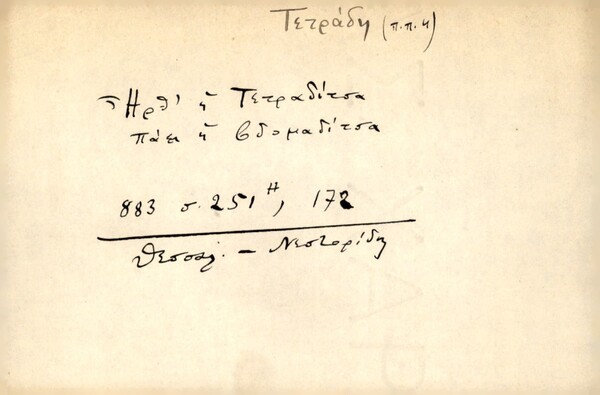 Τετράδη (π.π.η)
Ἦρθ' ἡ Τετραδίτσα
πάει ἡ βδομαδίτσα
883 σ. 251 Η, 172
Θεσσαλ. - Νεστορίδη